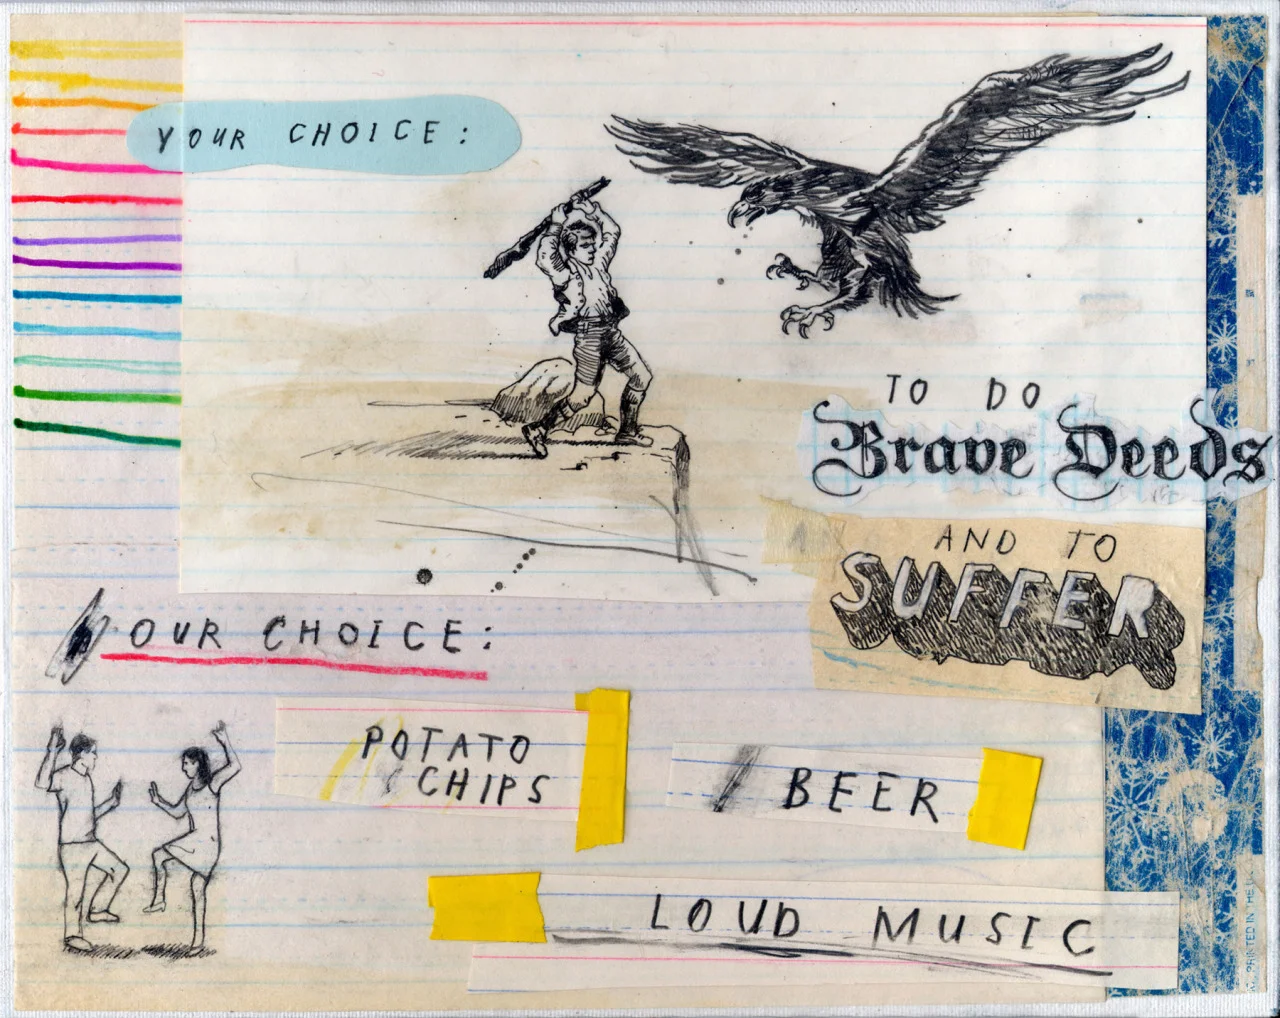 YOUR CHOICE:
TO DO
Brave Deeds
AND TO
SUFFER
YOUR CHOICE:
POTATO
CHIPS
BEER
LOUD MUSIC